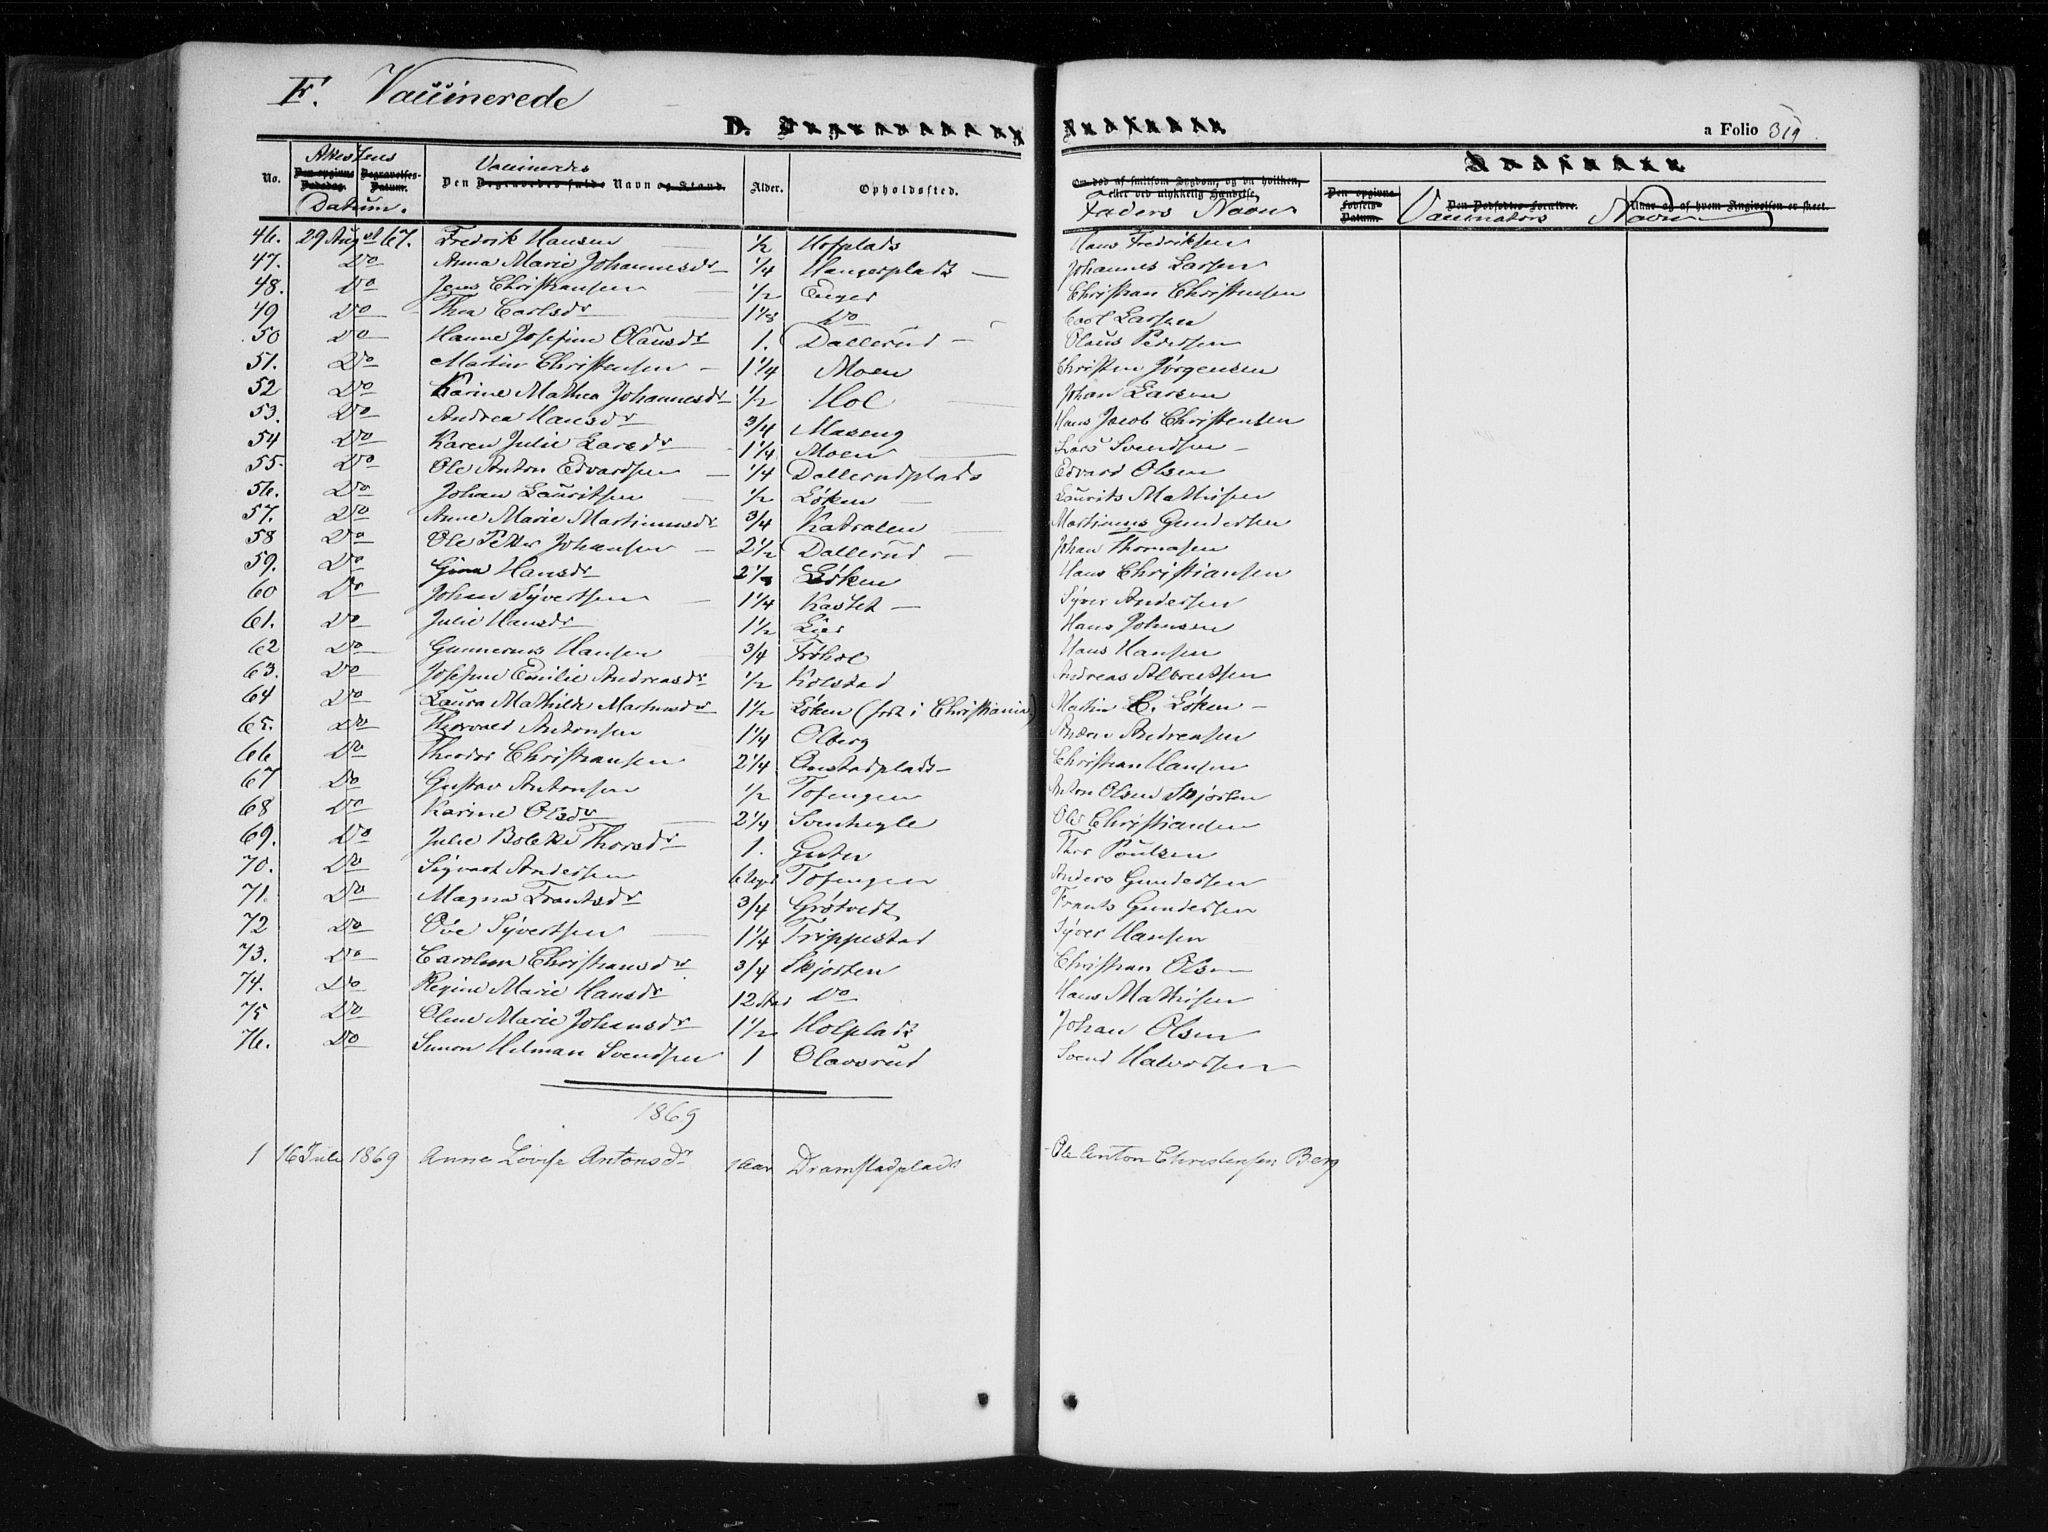 F. Vaccinerede
D.
a Folio 319.
No. Attestens Datum. Vaccineredes Den Begravedes fulde Navn og Stand. Alder. Opholdssted. Om død af smitsom Sygdom, og da hvilken, eller ved ulykkelig Hændelse. Faders Navn Den opgivne Fødsels-Datum. Den Dødfødtes Forældre. Naar og af hvem Angivelsen er skeet. Vaccinators Navn
46. 29 August 67. Fredrik Hansen 1/2 Holplads Hans Fredriksen
47. Do Anna Marie Johannesdr 1/4 Haugerplads Johannes Larsen
48. Do Jens Christiansen 1/2 Enger Christian Christensen
49 Do Thea Carlsdr Do Carl Larsen
50 Do Hanne Josefine Olausdr 1. Dallerud Olaus Pedersen
51. Do Martin Christensen 1 1/4 Moen Christen Jørgensen
52 Do Karine Mathea Johannesdr 1/2 Hol Johan Larsen
53. Do Andrea Hansdr 3/4 Maseng Hans Jacob Christensen
54 Do Karen Julie Larsdr 1 1/4 Moen Lars Svendsen
55. Do Ole Anton Edvardsen 1/4 Dallerudplads Edvard Olsen
56. Do Johan Lauritsen 1/2 Løken Laurits Mathisen
57. Do Anne Marie Martinusdr 3/4 Katralen Martinus Gundersen
58 Do Ole Petter Johansen 2 1/2 Dallerud Johan Thomasen
59. Do Gina Hansdr Løken Hans Christiansen
60 Do Johan Syvertsen 1 1/4 Kastet Syver Andersen
61. Do Julie Hansdr 1 1/2 Lier Hans Johnsen
62 Do Gunnerius Hansen 3/4 Frøhol Hans Hansen
63. Do Josefine Emilie Andreasdr 1/2 Kolstad Andreas Albretsen
64 Do Laura Mathilde Martinsdr 1 1/2 Løken (født i Christiania) Martin C. Løken
65. Do Thorvald Antonsen 1 1/4 Olberg Anton Andreasen
66 Do Theodor Christiansen 2 1/4 Onstadplads Christian Hansen
67 Do Gustav Antonsen 1/2 Tofengen Anton Olsen Skjørten
68 Do Karine Olsdr 2 1/4 Svenhegle Ole Christiansen
69. Do Julie Bolette Thorsdr 1. Guter Thor Poulsen
70. Do Sigvart Andersen 6 Uger Tofengen Anders Gundersen
71. Do Magna Frantsdr 3/4 Grøtvedt Frants Gundersen
72 Do Ove Syvertsen 1 1/4 Trippestad Syver Hansen
73. Do Caroline Christiansdr 3/4 Skjørten Christian Olsen
74. Do Regine Marie Hansdr 12 Do Hans Mathisen
75 Do Oline Marie Johansdr 1 1/2 Holplads Johan Olsen
76. Do Simon Hilman Svendsen 1 Olavsrud Svend Halvorsen
1869
1 16 Juli 1869 Anne Lovise Antonsdr 1 Aar Dramstadplads Ole Anton Christensen Berg